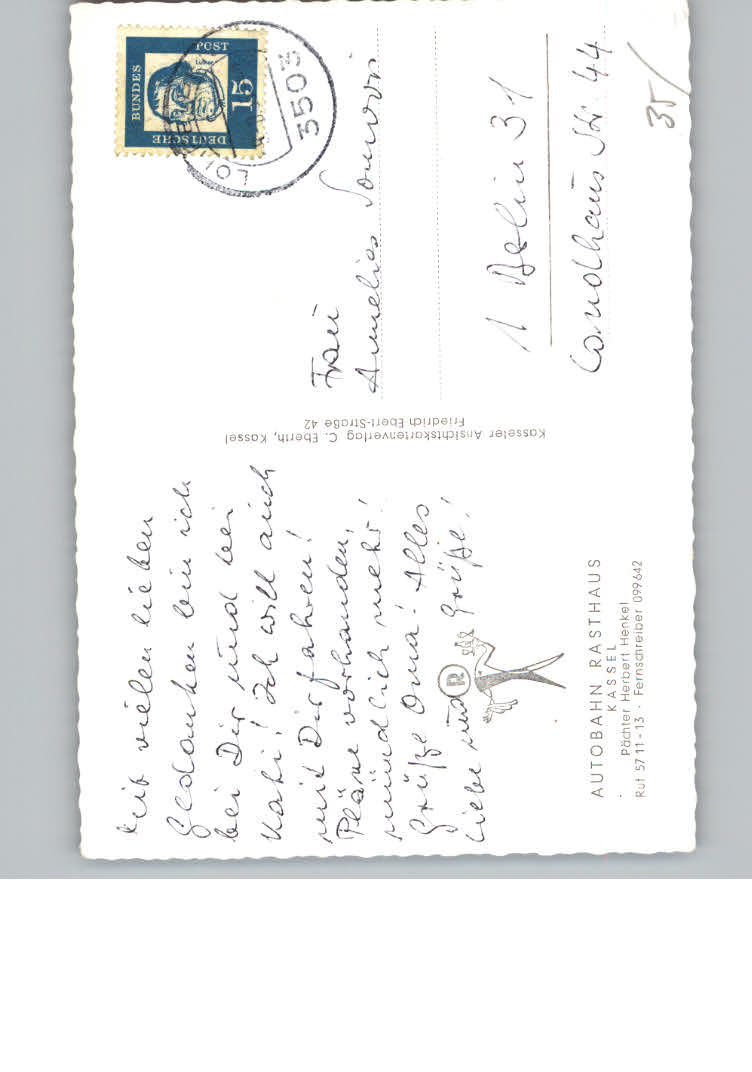 Mit vielen lieben
Gedanken bin ich
bei Dir und bei
Kati! Ich will auch
mit Dir fahren!
Pläne vorhanden,
mündlich mehr!
Grüße Oma! Alles
Liebe und Grüße!
R
AUTOBAHN RASTHAUS
KASSEL
Pächter Herbert Henkel
Ruf 57 11-13 · Fernschreiber 099642
Kasseler Ansichtskartenverlag C. Eberth, Kassel
Friedrich-Ebert-Straße 42
DEUTSCHE
BUNDES
POST
Luther
15
3503
Frau
Annelies
1 Berlin 31
Landhaus Str. 44
35/